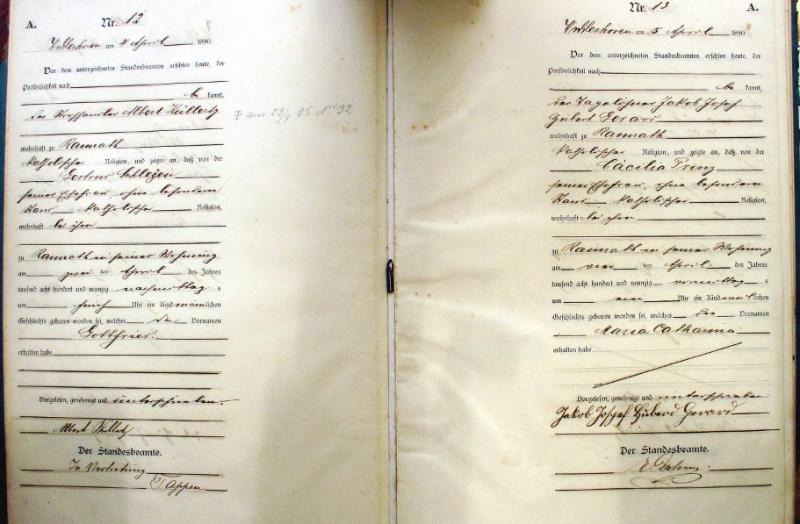 A.
Nr. 12
am 4 April 1890.
Vor dem unterzeichneten Standesbeamten erschien heute, der
Persönlichkeit nach
be kannt,
der Albert
wohnhaft zu Ramrath
katholischer Religion, und zeigte an, daß von der
seiner Ehefrau, ohne besonderen
Stand katholischer Religion,
wohnhaft bei ihm
zu Ramrath in seiner Wohnung
am zwei ten April des Jahres
tausend acht hundert und neunzig nachmittags
um fünf Uhr ein Kind männlichen
Geschlechts geboren worden sei, welches den Vornamen
Gottfried
erhalten habe
Vorgelesen, genehmigt und unterschrieben.
Albert
Der Standesbeamte.
In Vertretung
Nr. 13
A.
am 5 April 1890
Vor dem unterzeichneten Standesbeamten erschien heute, der
Persönlichkeit nach
be kannt,
der Tagelöhner Jakob Josef
Hubert Gerard
wohnhaft zu Ramrath
katholischer Religion, und zeigte an, daß von der
Cäcilia Prinz
seiner Ehefrau, ohne besonderen
Stand katholischer Religion,
wohnhaft bei ihm
zu Ramrath in seiner Wohnung
am vier ten April des Jahres
tausend acht hundert und neunzig vormittags
um ein Uhr ein Kind weiblichen
Geschlechts geboren worden sei, welches die Vornamen
Maria Catharina
erhalten habe
Vorgelesen, genehmigt und unterschrieben
Jakob Joseph Huberd Gerard
Der Standesbeamte.